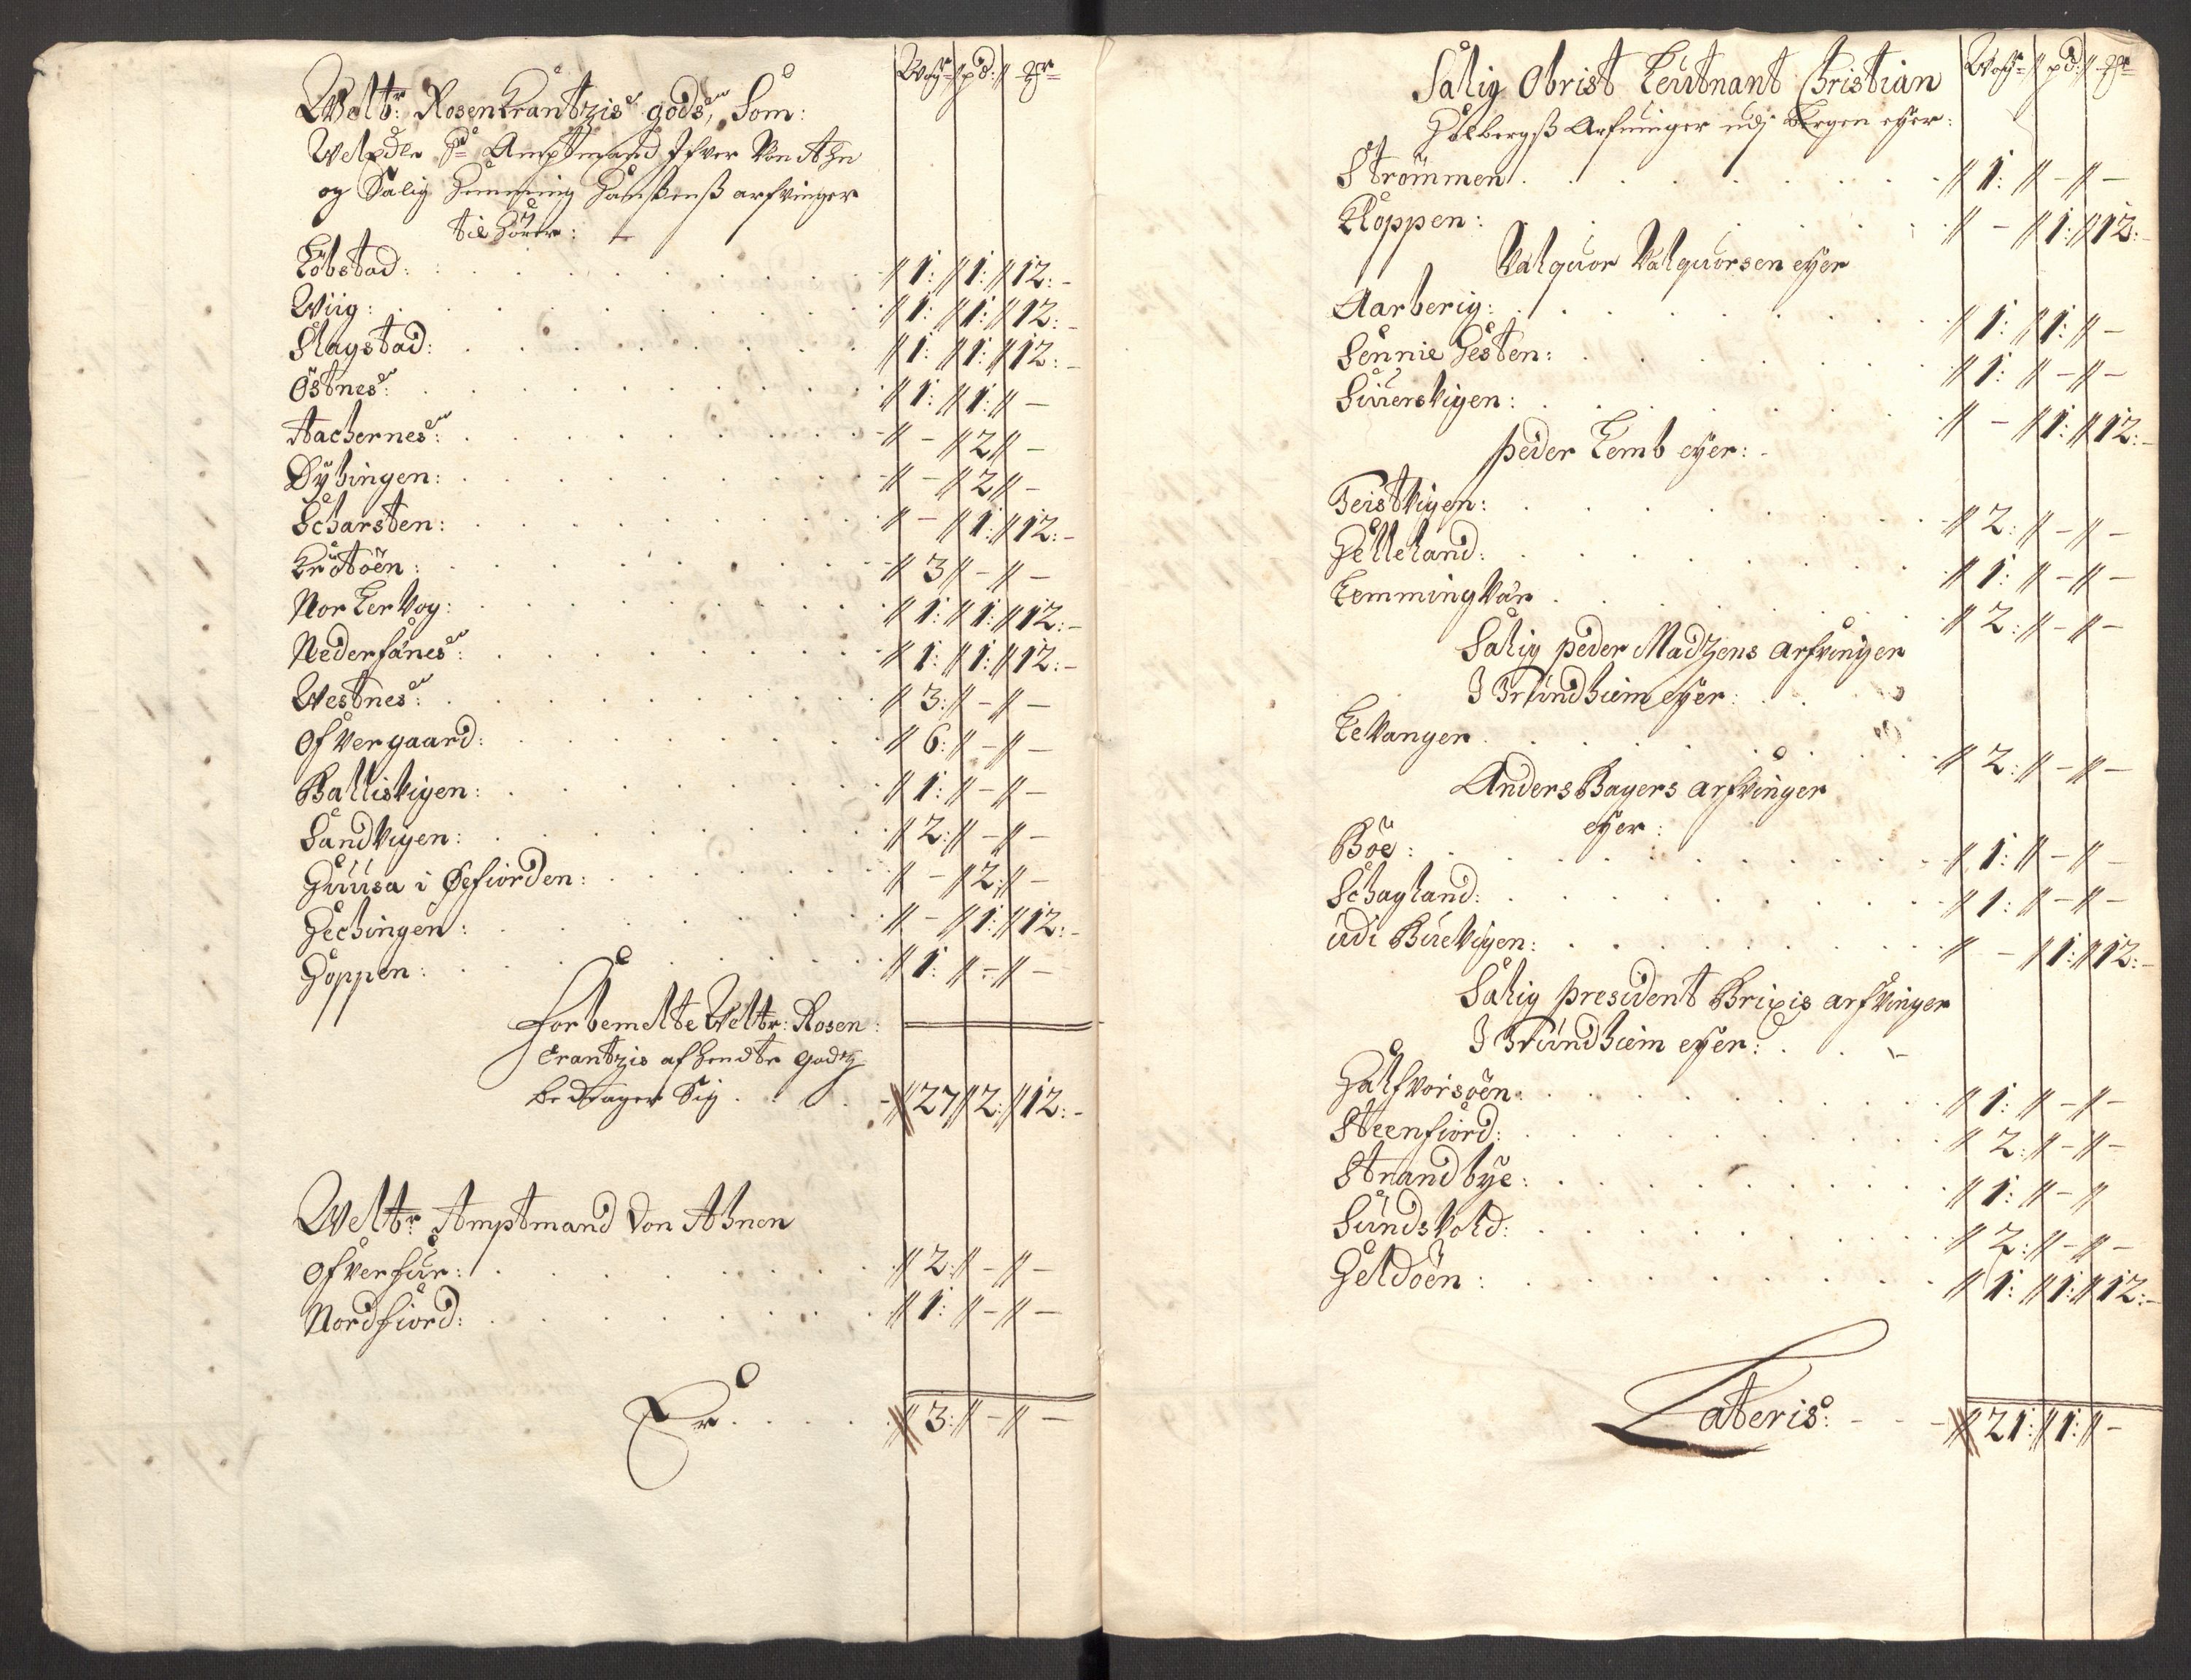 Wog: pd: mk
Weltr: Rosenkrantzis gods, Som:
Welædle Hr Amptmand Ifver Von Ahn
og Salig Hemming Hanssenß arfvinger
til hører:
Løbstad: 1: 1: 12:
Wiig: 1: 1: 12:
Slagstad: 1: 1: 12:
Østnes: 1: 1: -
Aachernes: - 2 -
Dybingen: - 2 -
Scharsten: - 1: 12:
Krøttøen: 3 - -
Nor Lervog: 1: 1: 12:
Nederfanes: 1: 1: 12:
Westnes: 3: - -
Ofvergaard: 6: - -
Ballisvigen: 1: - -
Sandvigen: 2: - -
Huusa i Øefiorden: - 2: -
Hechingen: - 1: 12:
Hoppen: 1: - -
Forbemelte Weltr: Rosen:
krantzis afhendte godtz
bedrager Sig 27 2: 12:
Weltr Amptmand Von Ahnen
Ofverhuar: 2: - -
Nordfiord: 1: - -
Er 3: - -
Wog: pd: mk
Salig Obrist Leutnant Christian
Holbergß Arfvinger udj Bergen eyer:
Strømmen 1: - -
Kloppen: - 1: 12:
Valquor Valquorsen eyer
Aarberig: 1: 1: -
Sennie Hesten: 1: - -
Siuersvigen: - 1: 12:
Peder Lemb eyer:
Teistvigen: 2: - -
Helleland: 1: - -
Lemmingvær 2: - -
Salig Peder Madtzens arfvinger
I Trundhiem eyer:
Levangen 2: - -
Anders Bayers arfvinger
eyer:
Bøe: 1: - -
Schagland: 1: - -
udi Buevigen: - 1: 12:
Salig President Brixis arfvinger
I Trundhiem eyer:
Halfvorsøen 1: - -
Steenfiord: 2: - -
Strandbye: 1: - -
Sundsvold: 2: - -
Heldøen: 1: 1: 12:
Lateris: 21: 1: -